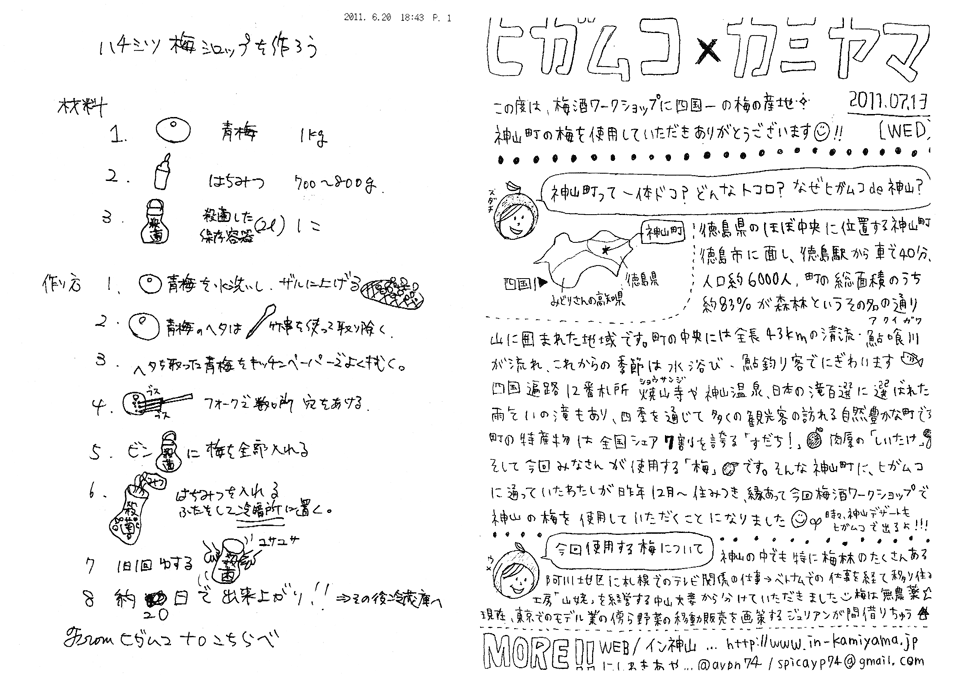 2011. 6.20 18:43 P. 1
ハチミツ梅シロップを作ろう
材料
1. 青梅 1kg
2. はちみつ 700〜800g.
3. 殺菌 殺菌した
保存容器 (2ℓ) 1コ
作り方 1. 青梅を水洗いし、ザルに上げる
2. 青梅のヘタは 竹串を使って取り除く。
3. ヘタを取った青梅をキッチンペーパーでよくふく。
4. ブス ブス フォークで数ヶ所 穴をあける。
5. ビン 殺菌 に 梅を全部入れる
6. みつ 殺菌 はちみつを入れる
ふたをして冷暗所に置く。
7 1日1回 ゆする ユサユサ 殺菌
8 約 20 日で出来上がり!! ⇒その後冷蔵庫へ
From ヒガムコ
ヒガムコ×カミヤマ
この度は、梅酒ワークショップに四国一の梅の産地
2011.07.13
神山町の梅を使用していただきありがとうございます!!
(WED)
スダチ
神山町って一体ドコ?どんなトコロ?なぜヒガムコde神山?
神山町
四国!
徳島県
みどりさんの高知県
徳島県のほぼ中央に位置する神山町
徳島市に面し、徳島駅から車で40分、
人口約6000人、町の総面積のうち
約83%が森林というその名の通り
山に囲まれた地域です。町の中央には全長43kmの清流・鮎喰川
アクイガワ
が流れ、これからの季節は水浴び・鮎釣り客でにぎわいます
四国遍路12番札所 焼山寺や神山温泉、日本の滝百選に選ばれた
ショウサンジ
雨乞いの滝もあり、四季を通じて多くの観光客の訪れる自然豊かな町です
町の特産物は全国シェア7割を誇る「すだち!」肉厚の「しいたけ」
そして今回みなさんが使用する「梅」です。そんな神山町に、ヒガムコ
に通っていたわたしが昨年12月〜住みつき、縁あって今回梅酒ワークショップで
神山の梅を使用していただくことになりました
時々、神山デザートも
ヒガムコで出るよ!!!
ウメ
今回使用する梅について
神山の中でも特に梅林のたくさんある
阿川地区に札幌でのテレビ関係の仕事→ベトナムでの仕事を経て移り住み
工房「山姥」を経営する中山夫妻から分けていただきました 梅は無農薬で
現在、東京でのモデル業の傍ら野菜の移動販売を画策するジュリアンが間借りちゅう
MORE!! WEB/イン神山 ... http://www.in-kamiyama.jp
にしまあや... @aypn74 / spicayp74@gmail.com